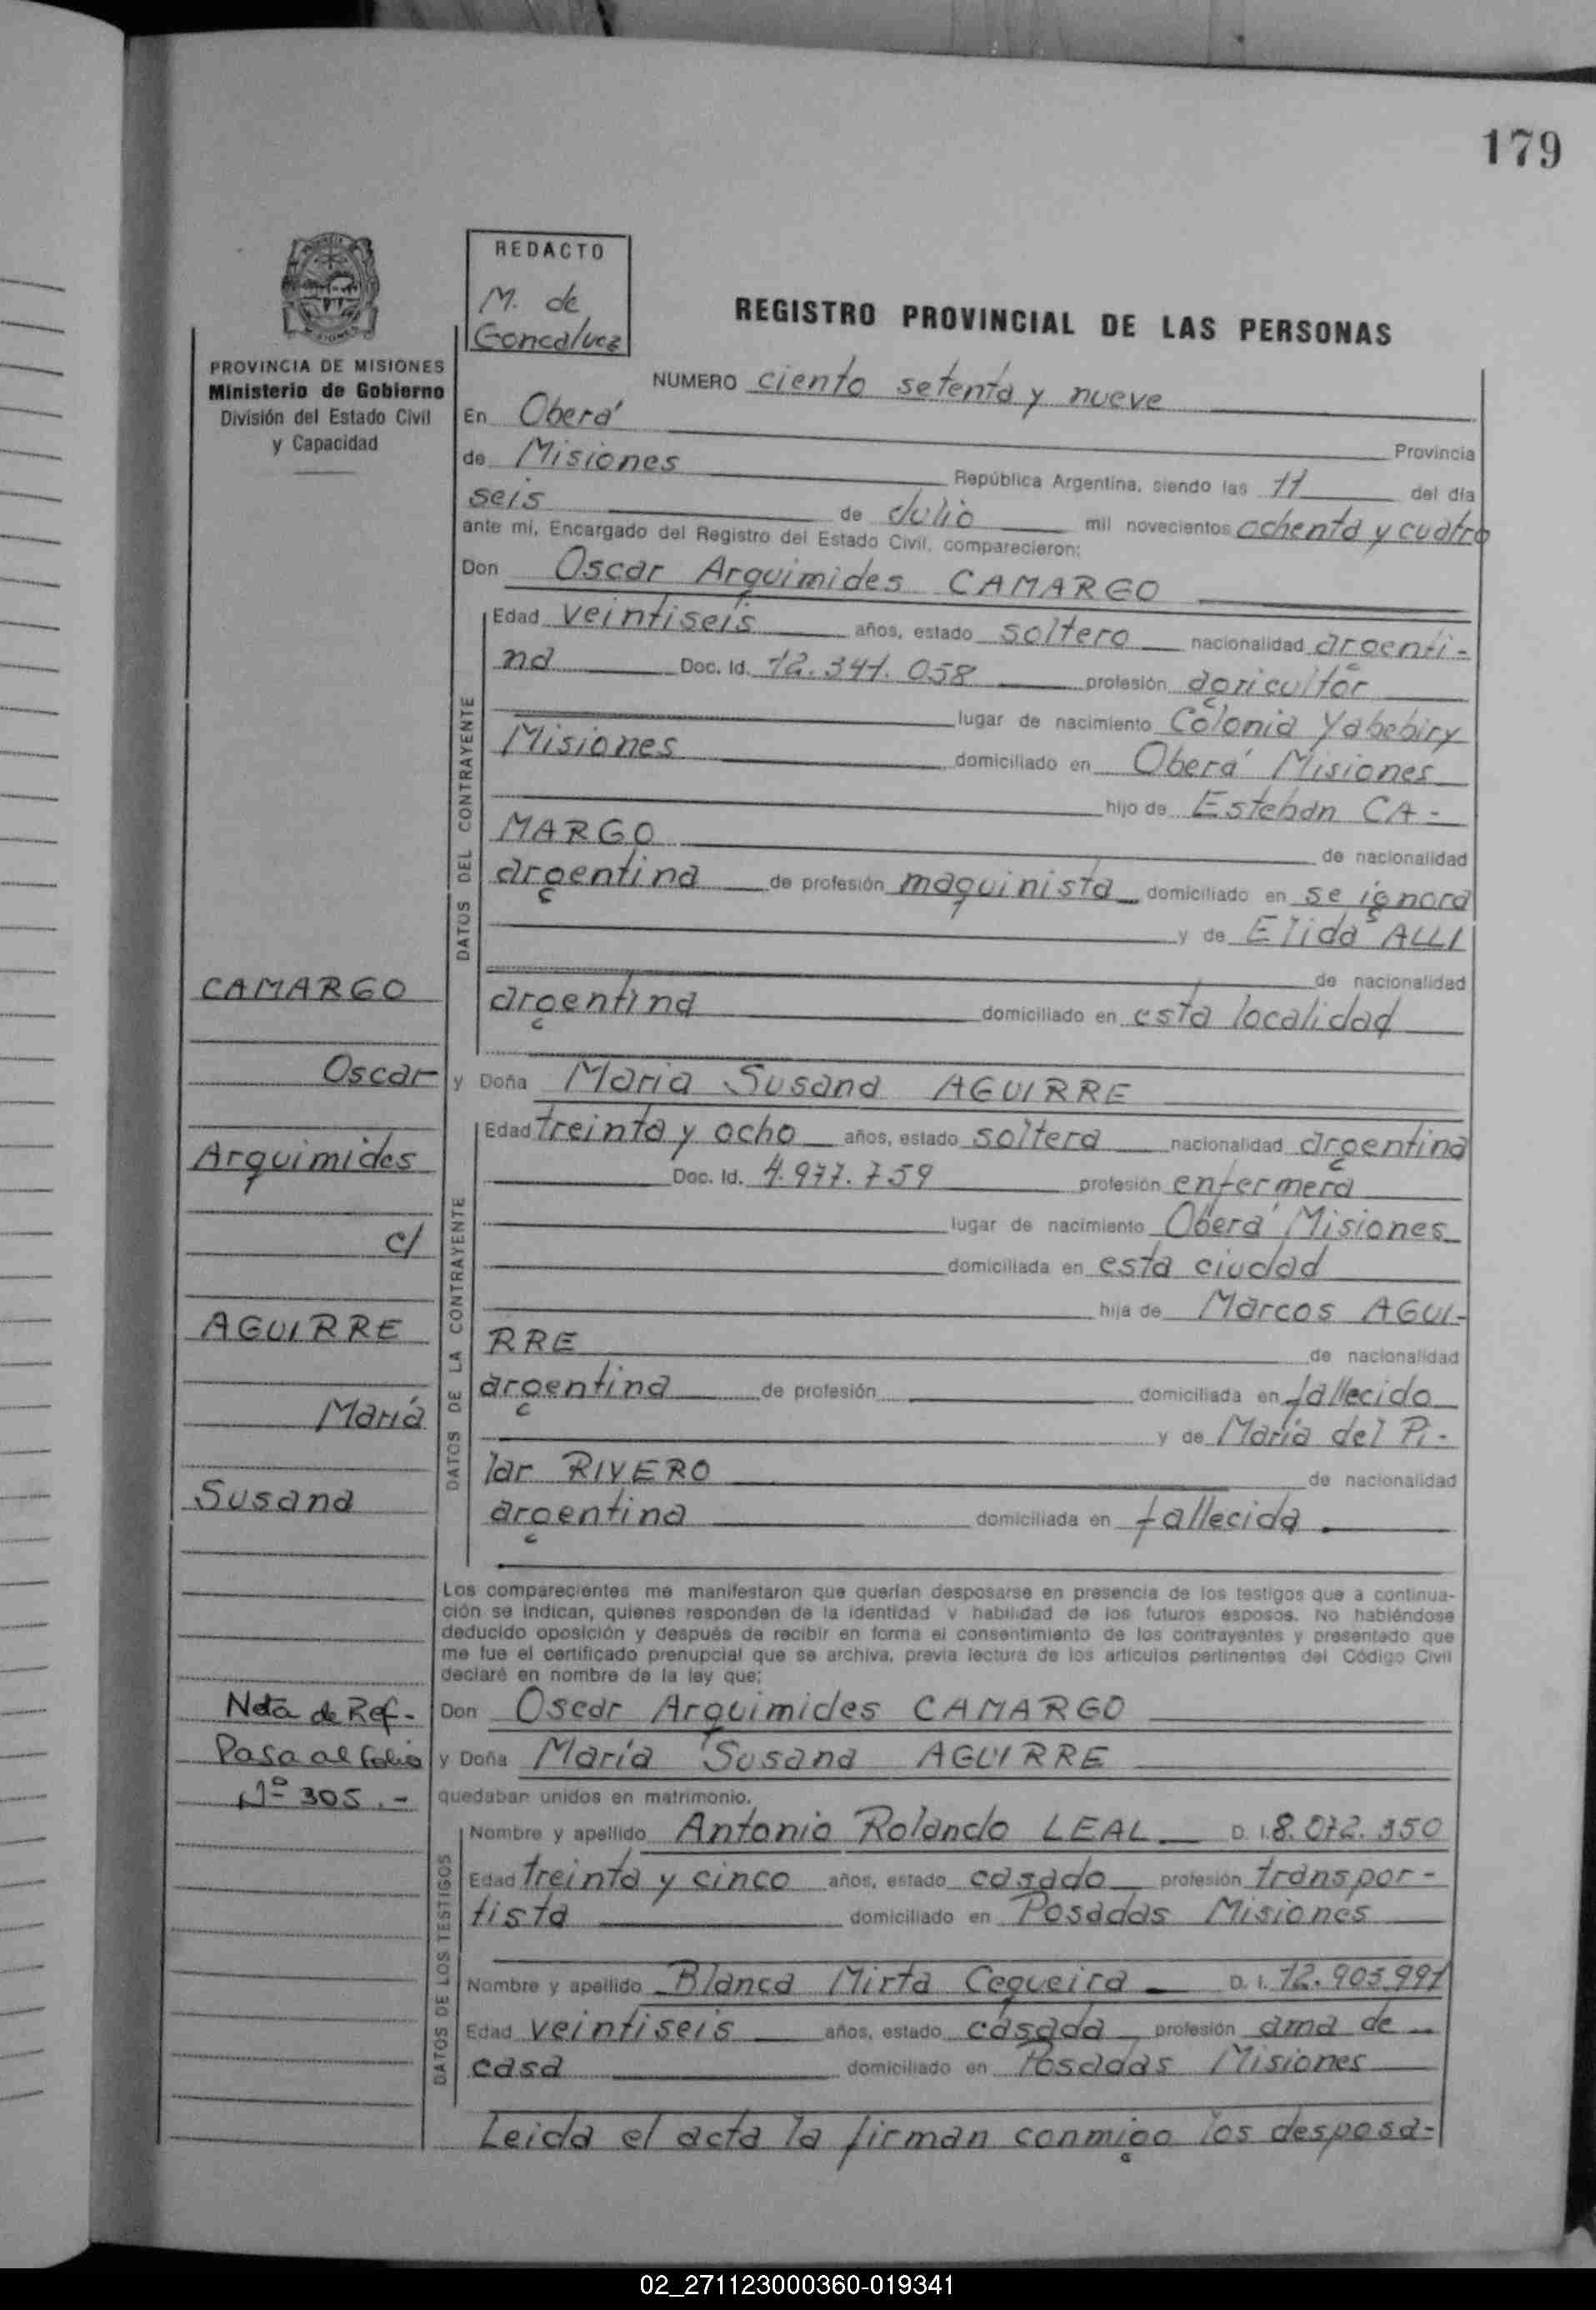 179
REDACTO
M. de
Goncalvez
REGISTRO PROVINCIAL DE LAS PERSONAS
PROVINCIA DE MISIONES
Ministerio de Gobierno
División del Estado Civil
y Capacidad
NUMERO ciento setenta y nueve
En Oberá
Provincia
de Misiones República Argentina, siendo las 11 del día
seis de Julio mil novecientos ochenta y cuatro
ante mí, Encargado del Registro del Estado Civil, comparecieron:
Don Oscar Arquimides CAMARGO
DATOS DEL CONTRAYENTE
Edad veintiseis años, estado soltero nacionalidad argenti-
na Doc. Id. 12.341.058 profesión agricultor
lugar de nacimiento Colonia Yabebiry
Misiones domiciliado en Oberá Misiones
hijo de Esteban CA-
MARGO de nacionalidad
argentina de profesión maquinista domiciliado en se ignora
y de Elida ALLI
de nacionalidad
argentina domiciliado en esta localidad
y Doña Maria Susana AGUIRRE
DATOS DE LA CONTRAYENTE
Edad treinta y ocho años, estado soltera nacionalidad argentina
Doc. Id. 4.977.759 profesión enfermera
lugar de nacimiento Oberá Misiones
domiciliada en esta ciudad
hija de Marcos AGUI-
RRE de nacionalidad
argentina de profesión domiciliada en fallecido
y de María del Pi-
lar RIVERO de nacionalidad
argentina domiciliada en fallecida
CAMARGO
Oscar
Arquimides
c/
AGUIRRE
María
Susana
Los comparecientes me manifestaron que querían desposarse en presencia de los testigos que a continua-
ción se indican, quienes responden de la identidad y habilidad de los futuros esposos. No habiéndose
deducido oposición y después de recibir en forma el consentimiento de los contrayentes y presentado que
me fue el certificado prenupcial que se archiva, previa lectura de los artículos pertinentes del Código Civil
declaré en nombre de la ley que:
Don Oscar Arquimides CAMARGO
y Doña María Susana AGUIRRE
quedaban unidos en matrimonio.
Nota de Ref-
Pasa al folio
Nº 305.-
DATOS DE LOS TESTIGOS
Nombre y apellido Antonio Rolando LEAL D. I. 8.072.350
Edad treinta y cinco años, estado casado profesión transpor-
tista domiciliado en Posadas Misiones
Nombre y apellido Blanca Mirta Cequeira D. I. 12.903.991
Edad veintiseis años, estado casada profesión ama de
casa domiciliado en Posadas Misiones
Leida el acta la firman conmigo los desposa-
02_271123000360-019341